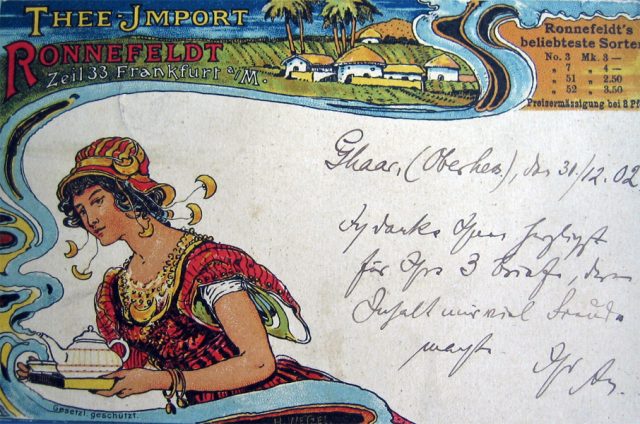 THEE-IMPORT
RONNEFELDT
Zeil 33 Frankfurt a/M.
Ronnefeldt's
beliebteste Sorten
No. 3 Mk. 3 —
" 7 " 4 —
" 51 " 2.50
" 52 " 3.50
Preisermässigung bei 8 Pf
(Oberhess.), den 31./12. 02
Ich danke Ihnen herzlichst
für Ihre 3 Briefe, deren
Inhalt mir viel Freude
macht. Ihr
Gesetzl. geschützt.